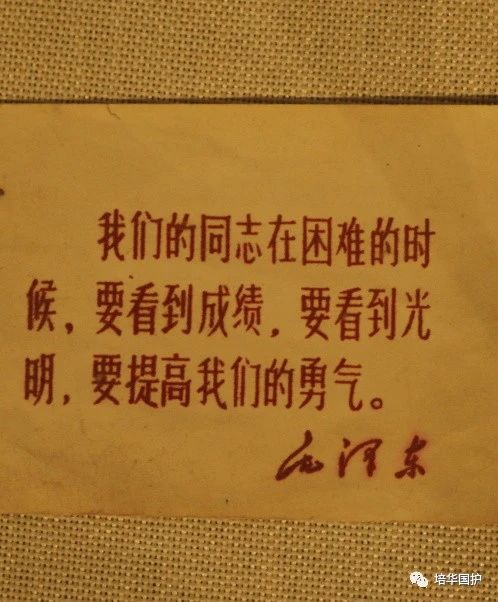 我们的同志在困难的时
候，要看到成绩，要看到光
明，要提高我们的勇气。
毛泽东
培华国护